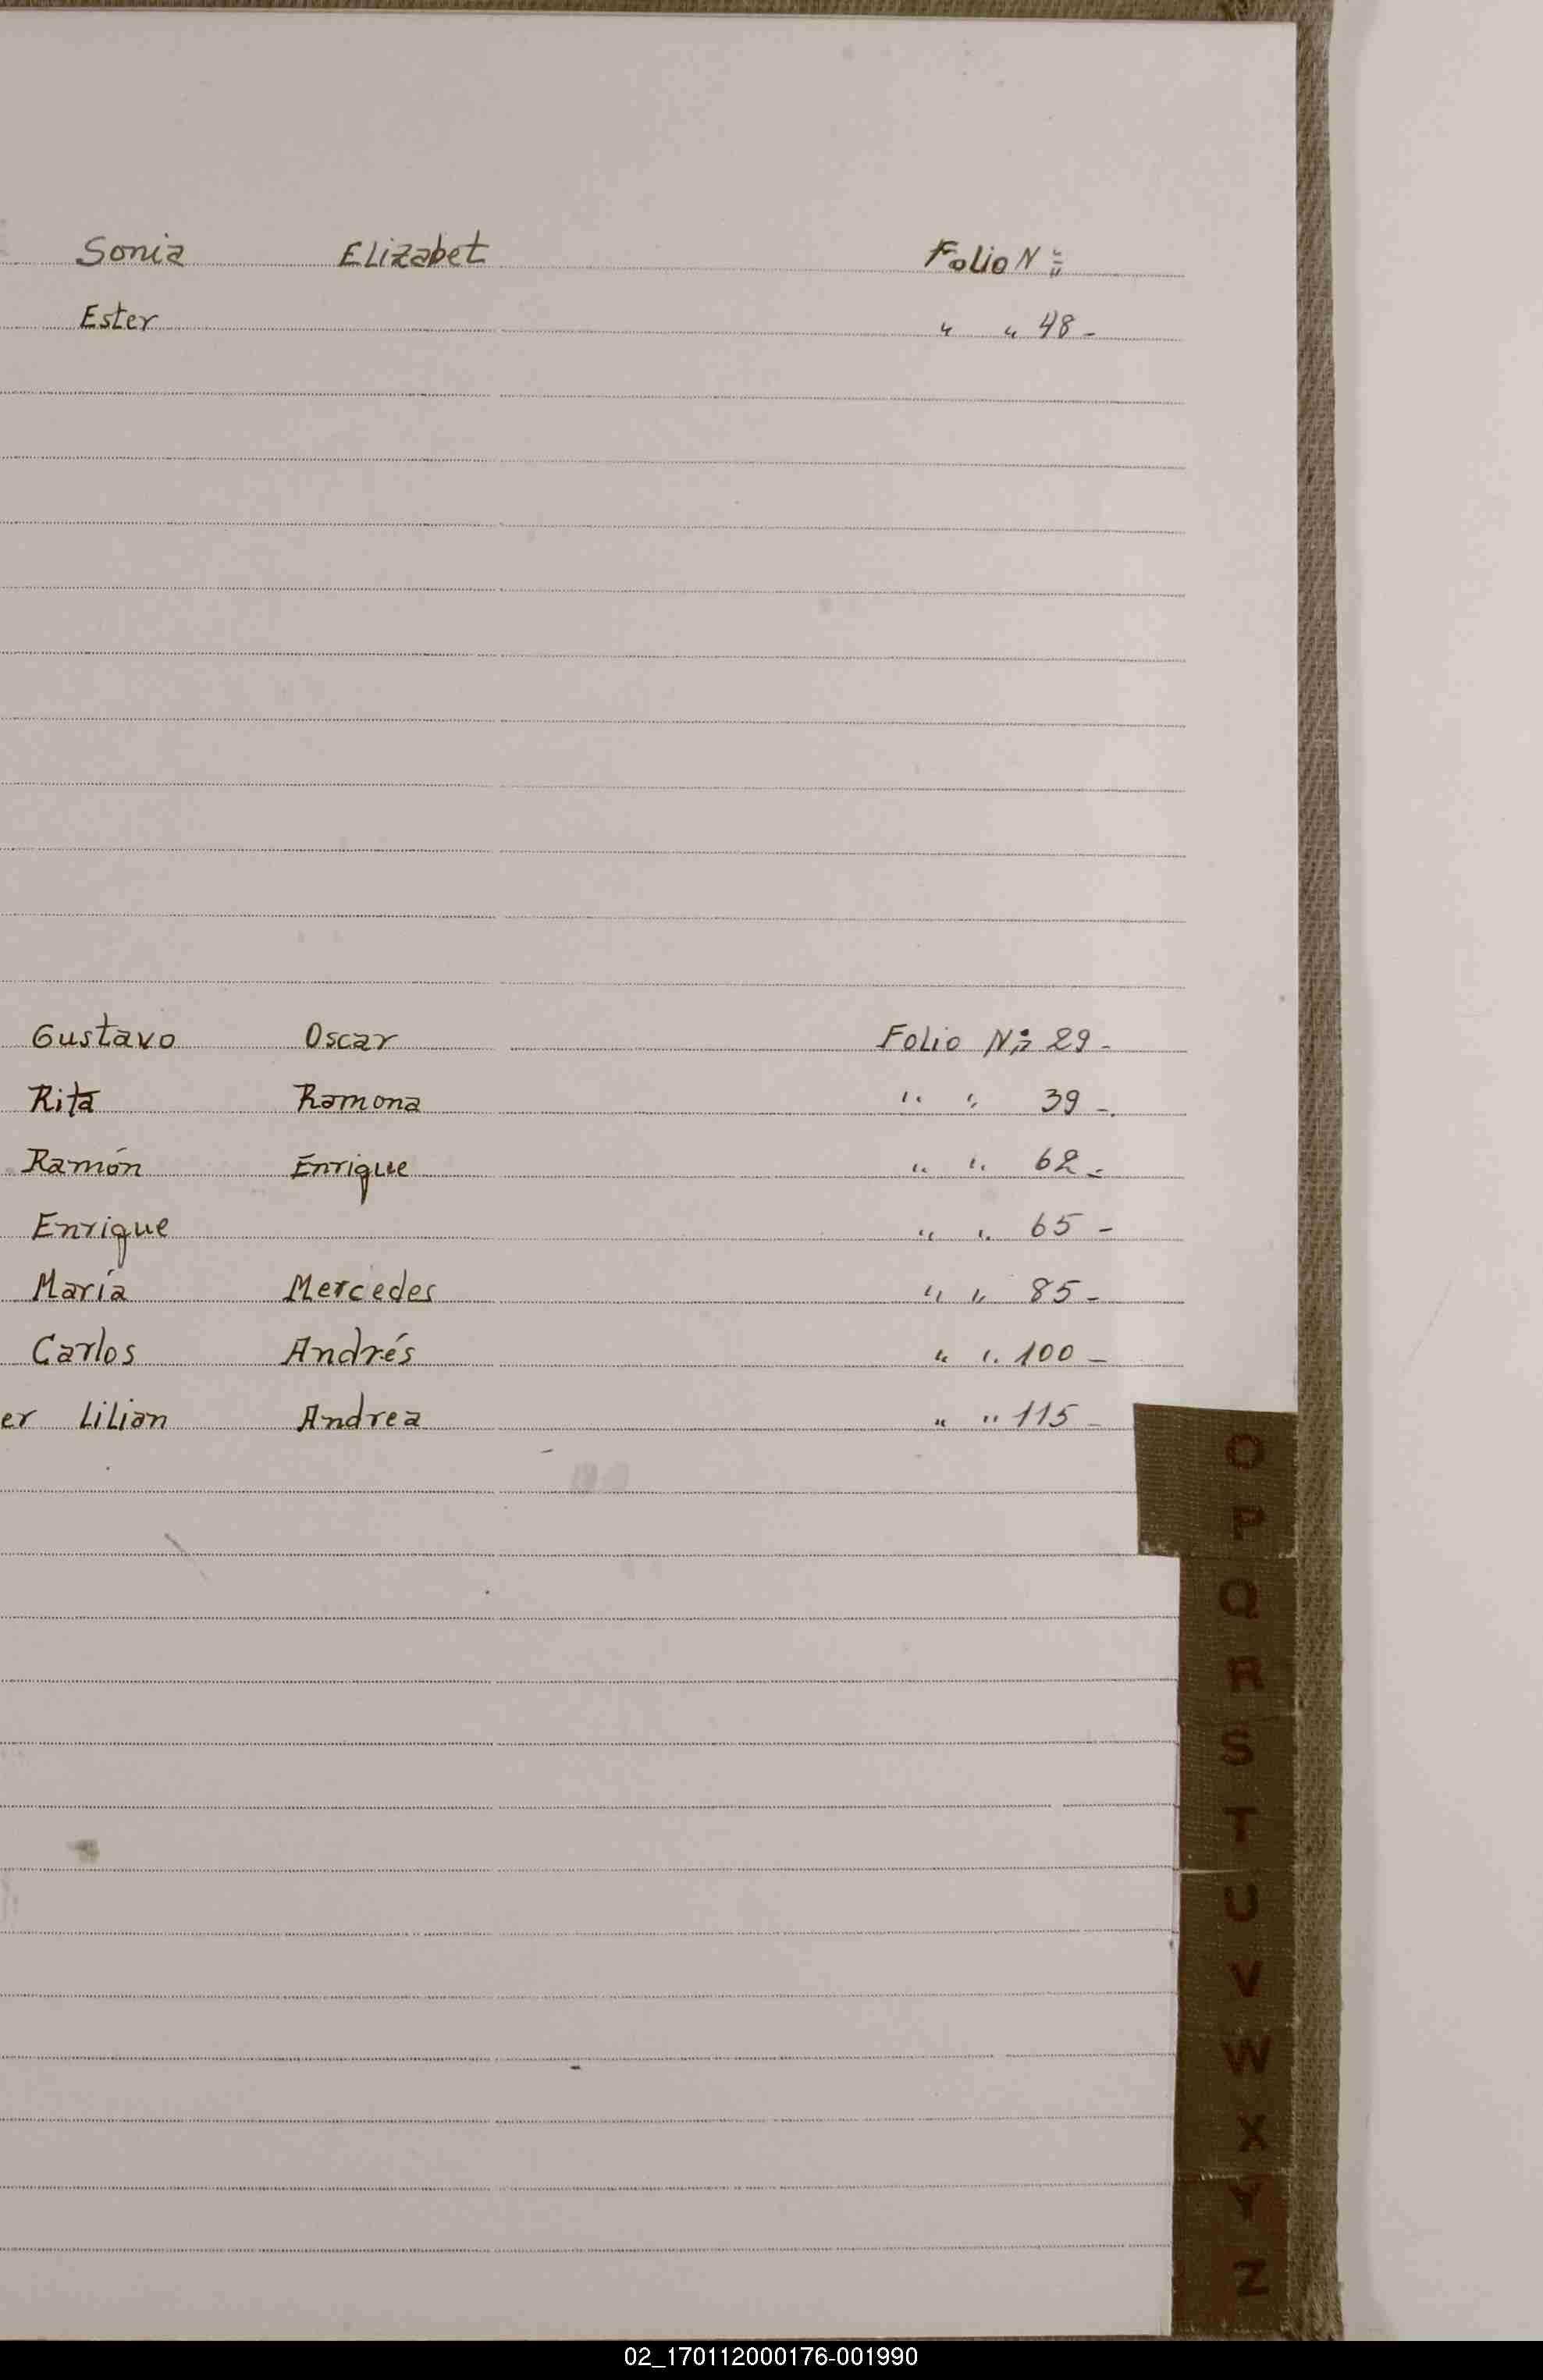 Sonia Elizabet Folio Nº
Ester " " 48-
Gustavo Oscar Folio Nº 29-
Rita Ramona " " 39-.
Ramón Enrique " " 62-
Enrique " " 65-
María Mercedes " " 85-
Carlos Andrés " " 100-
er Lilian Andrea " " 115-
O
P
Q
R
S
T
U
V
W
X
Y
Z
02_170112000176-001990